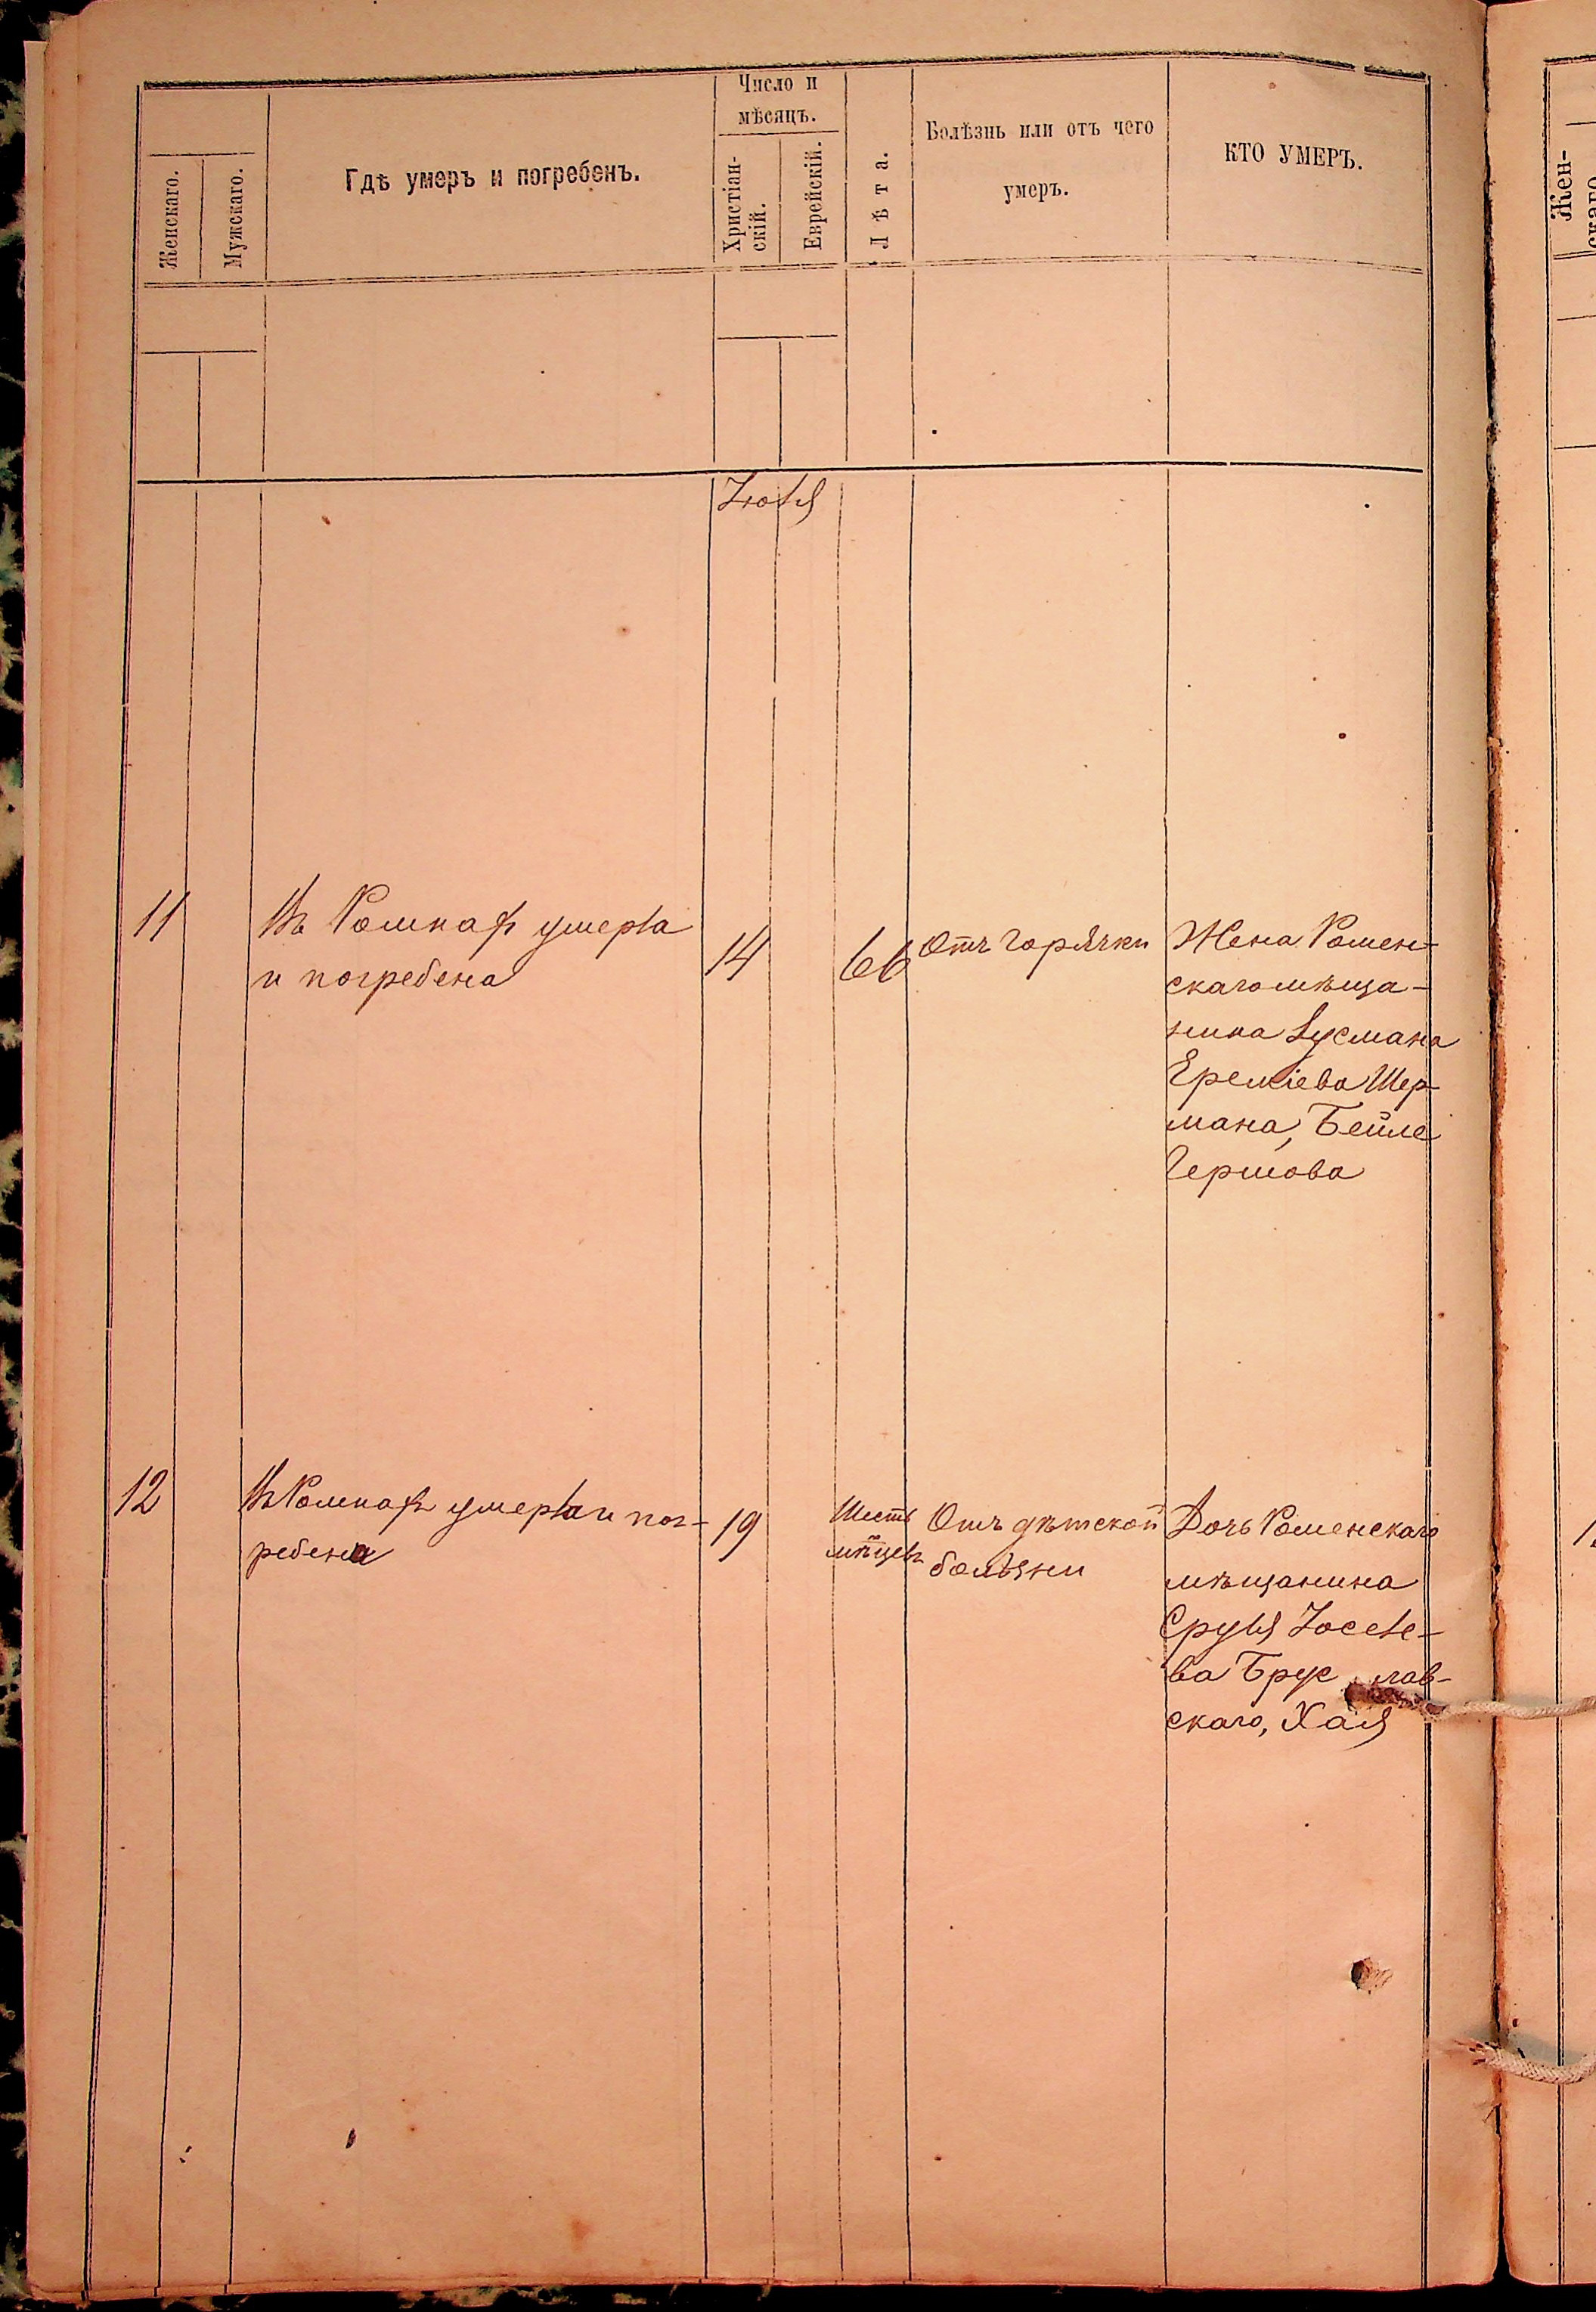 Число и
мѣсяцъ.
Женскаго.
Мужскаго.
Гдѣ умеръ и погребенъ.
Христіан-
скій.
Еврейскій.
Лѣта.
Болѣзнь или отъ чего
умеръ.
КТО УМЕРЪ.
Іюля
11
Въ Ромнахъ умерла
и погребена
14
66
Отъ горячки
Жена Ромен-
скаго мѣща-
нина Зусмана
Ереміева Шер-
мана, Бейле
Гершова
12
Въ Ромнахъ умерла и пог-
ребена
19
Шесть
мѣ-цевъ
Отъ дѣтской
болѣзни
Дочь Роменскаго
мѣщанина
Сруля Іоселе-
ва Брус лав-
скаго, Хая
Жен-
скаго